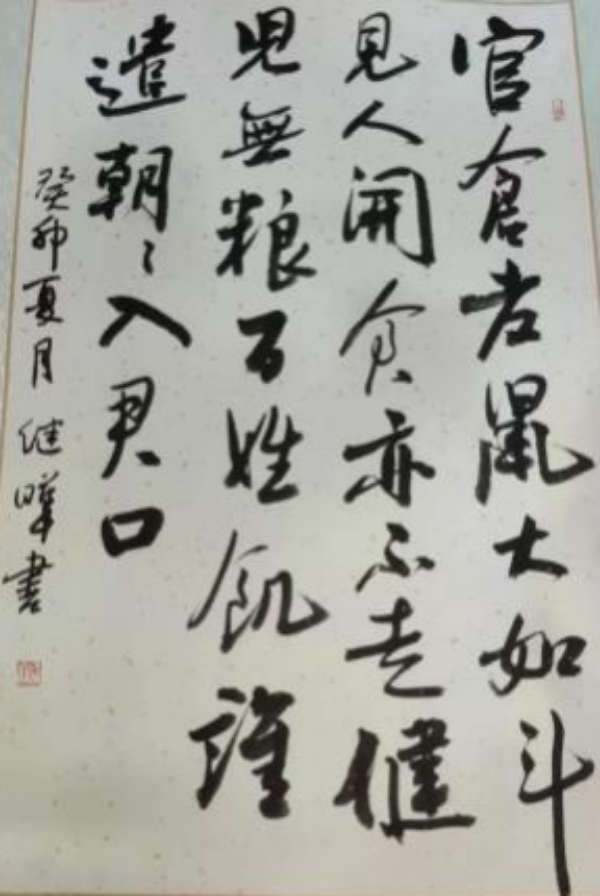 官倉老鼠大如斗
見人開食亦不走健
児無粮百姓飢誰
遣朝〻入君口
癸卯夏月继曄書